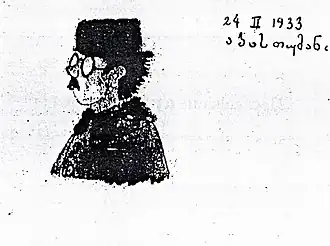 24 II 1933
აბასთუმანი